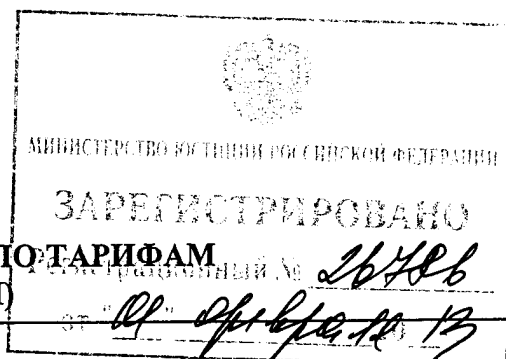 МИНИСТЕРСТВО ЮСТИЦИИ РОССИЙСКОЙ ФЕДЕРАЦИИ
ЗАРЕГИСТРИРОВАНО
ПО ТАРИФАМ
Регистрационный № 26786
от "01" февраля 2013